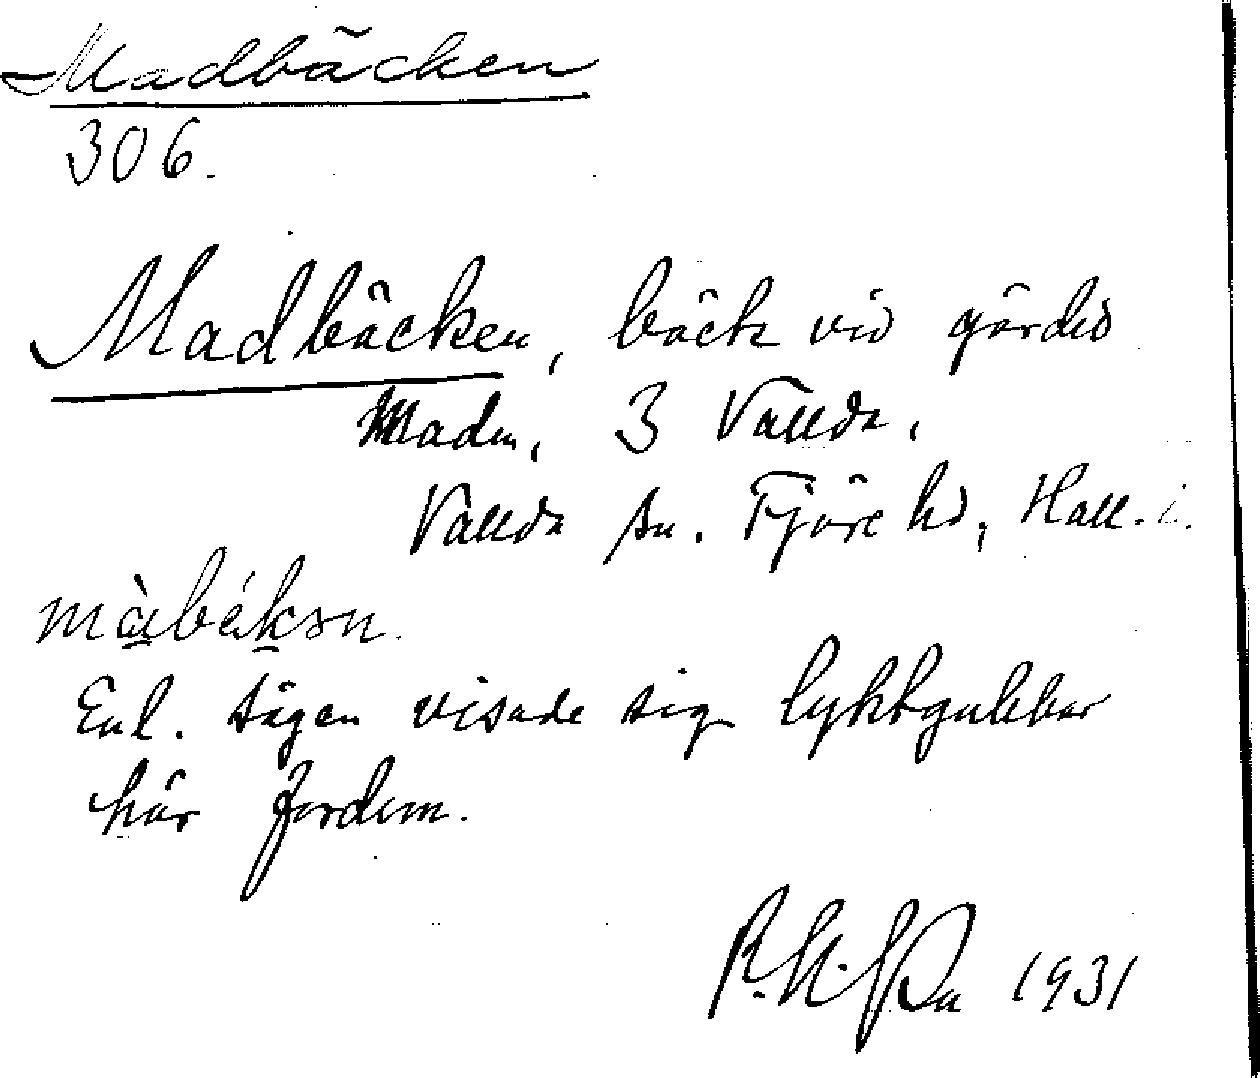 Madbäcken
306.
Madbäcken, bäck vid gärdet
Maden, 3 Vallda,
Vallda sn. Fjäre hd, Hall. l.
màbäkən.
Enl. sägen visade sig lyktgubbar
här fordom.
1931